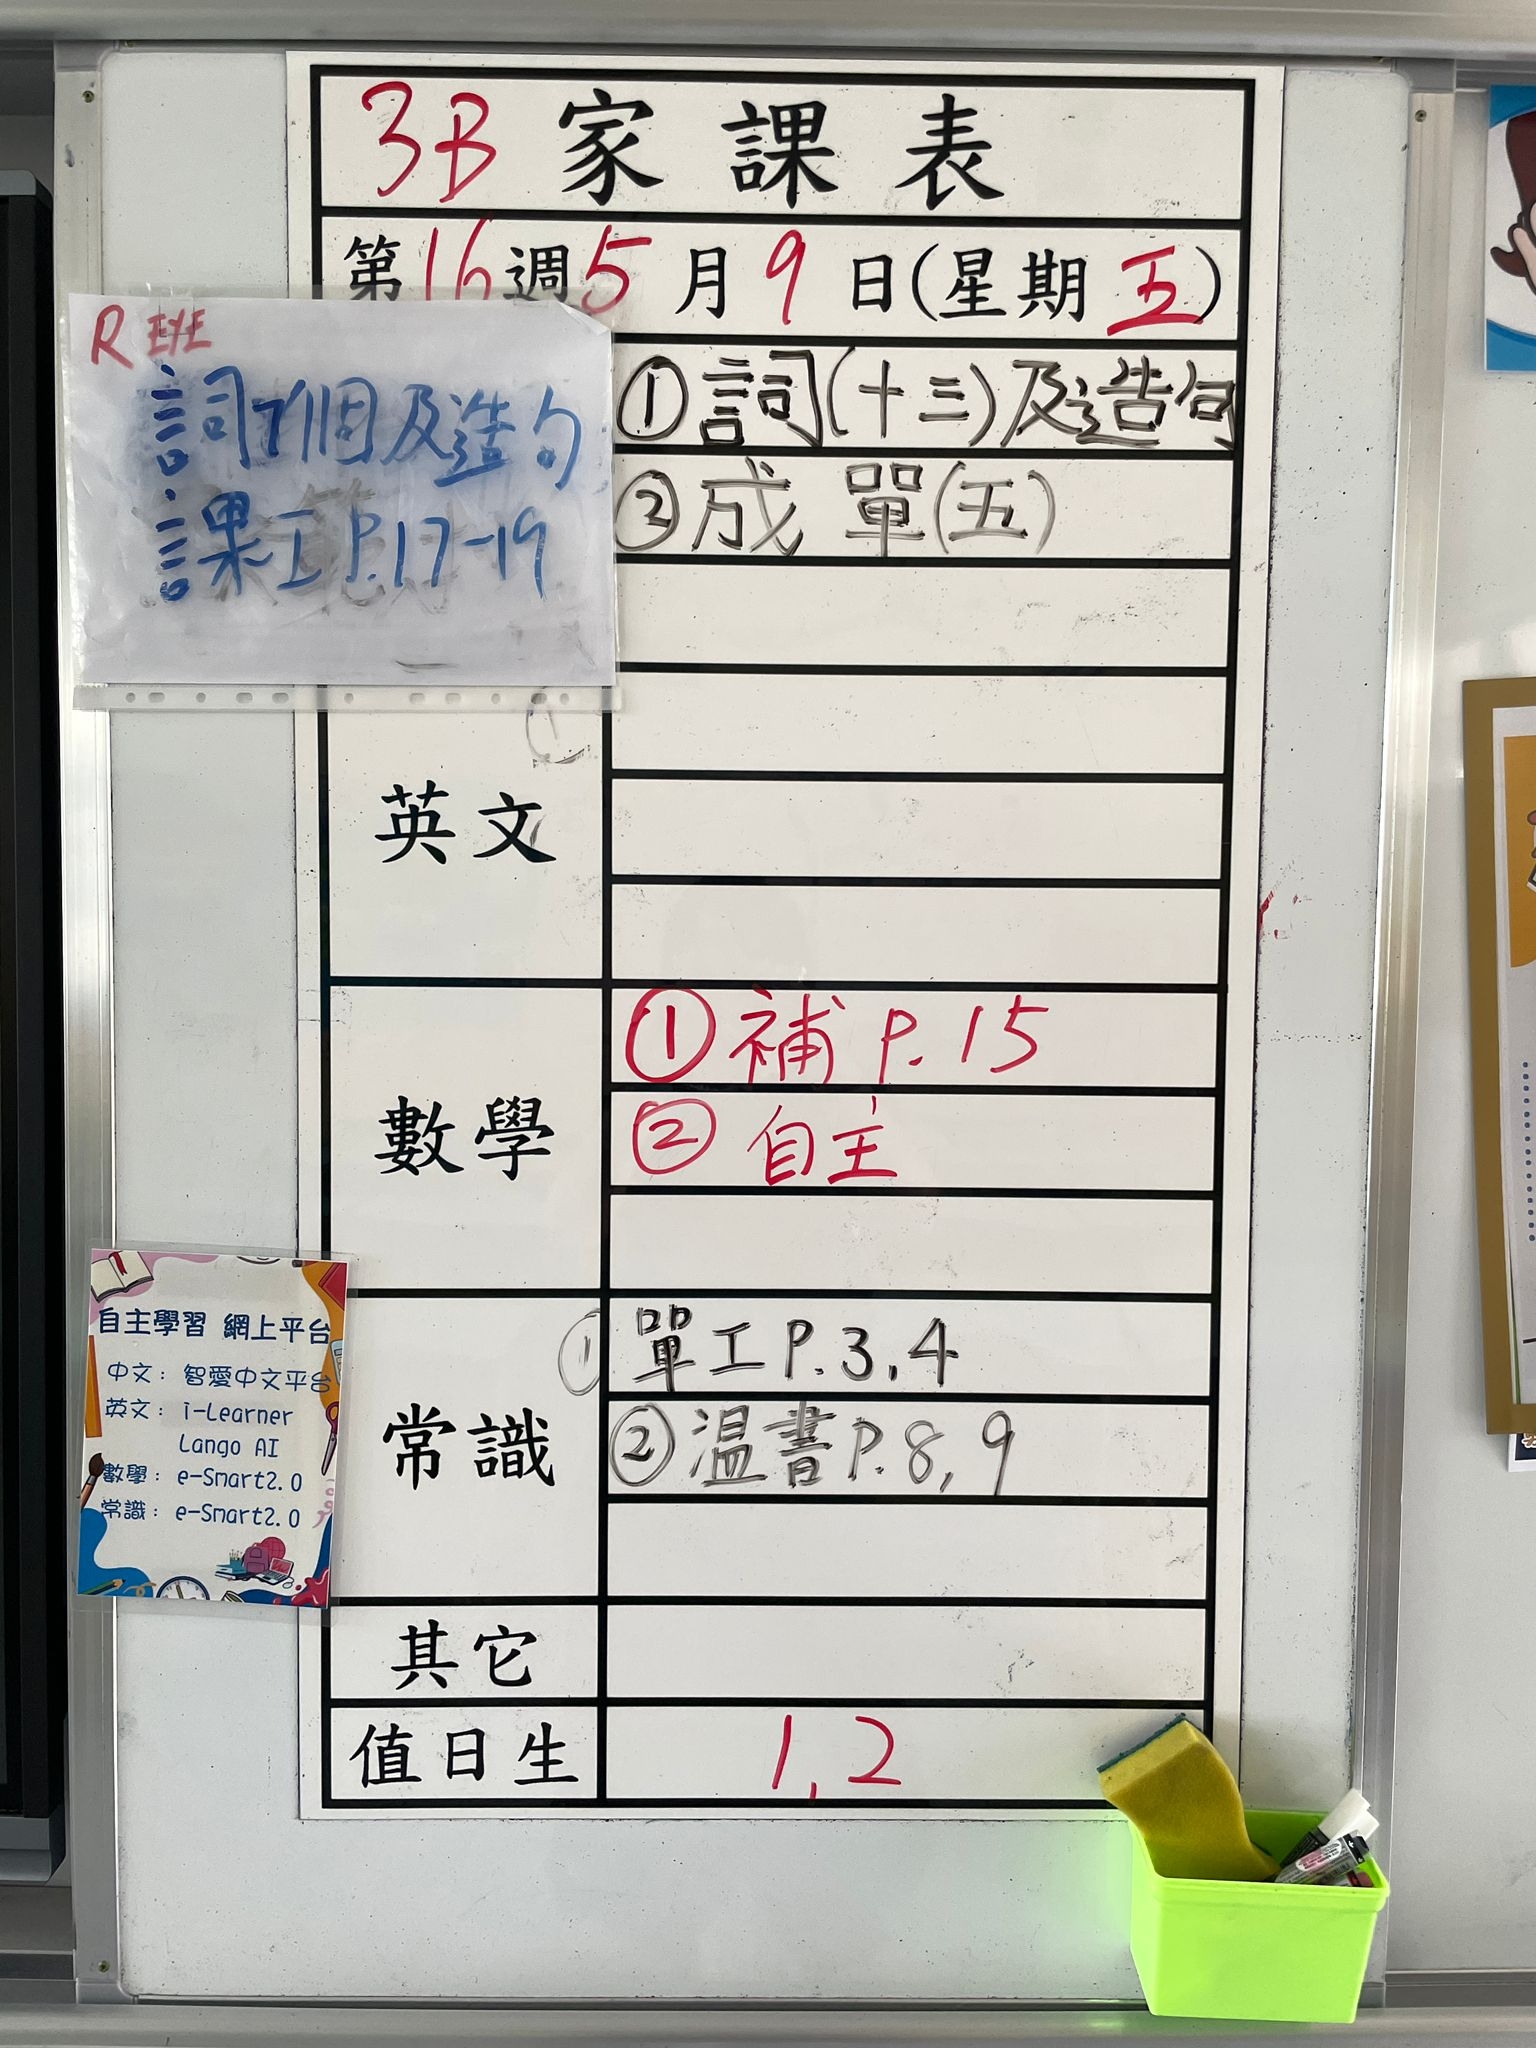 3B 家課表
第16週5月9日(星期五)
R EYE
詞7個及造句
課工P.17-19
①詞(十三)及造句
②成 單(五)
英文
數學
①補 P.15
②自主
常識
①單工P.3,4
②温書P.8,9
其它
值日生
1,2
自主學習 網上平台
中文：智愛中文平台
英文：i-Learner
Lango AI
數學：e-Smart2.0
常識：e-Smart2.0